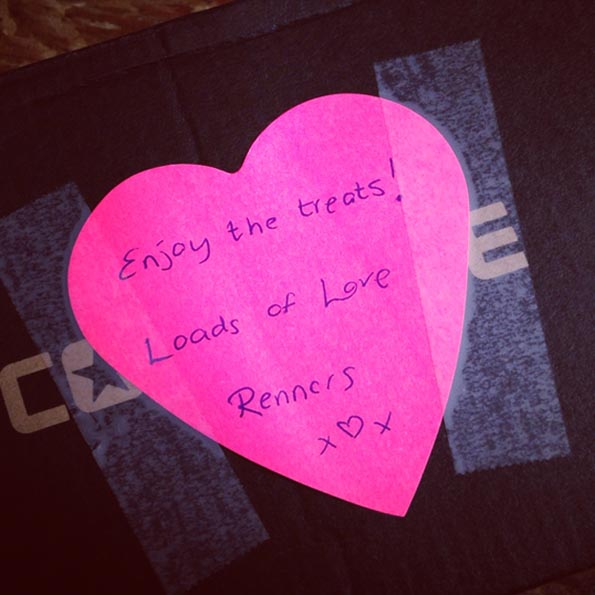 Enjoy the treats!
Loads of Love
Renners
x♡x
CO
E